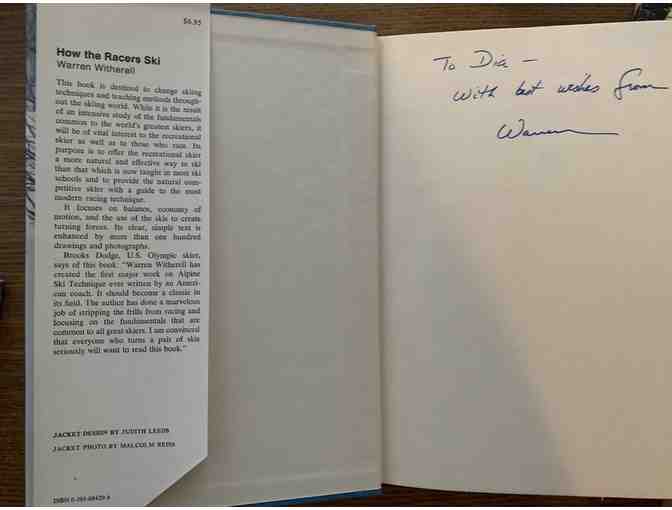 $6.95
How the Racers Ski
Warren Witherell
This book is destined to change skiing
techniques and teaching methods through-
out the skiing world. While it is the result
of an intensive study of the fundamentals
common to the world's greatest skiers, it
will be of vital interest to the recreational
skier as well as to those who race. Its
purpose is to offer the recreational skier
a more natural and effective way to ski
than that which is now taught in most ski
schools and to provide the natural com-
petitive skier with a guide to the most
modern racing technique.
It focuses on balance, economy of
motion, and the use of the skis to create
turning forces. Its clear, simple text is
enhanced by more than one hundred
drawings and photographs.
Brooks Dodge, U.S. Olympic skier,
says of this book: "Warren Witherell has
created the first major work on Alpine
Ski Technique ever written by an Ameri-
can coach. It should become a classic in
its field. The author has done a marvelous
job of stripping the frills from racing and
focusing on the fundamentals that are
common to all great skiers. I am convinced
that everyone who turns a pair of skis
seriously will want to read this book."
JACKET DESIGN BY JUDITH LEEDS
JACKET PHOTO BY MALCOLM REISS
ISBN 0-393-08429-6
To Dia –
With best wishes from
Warren